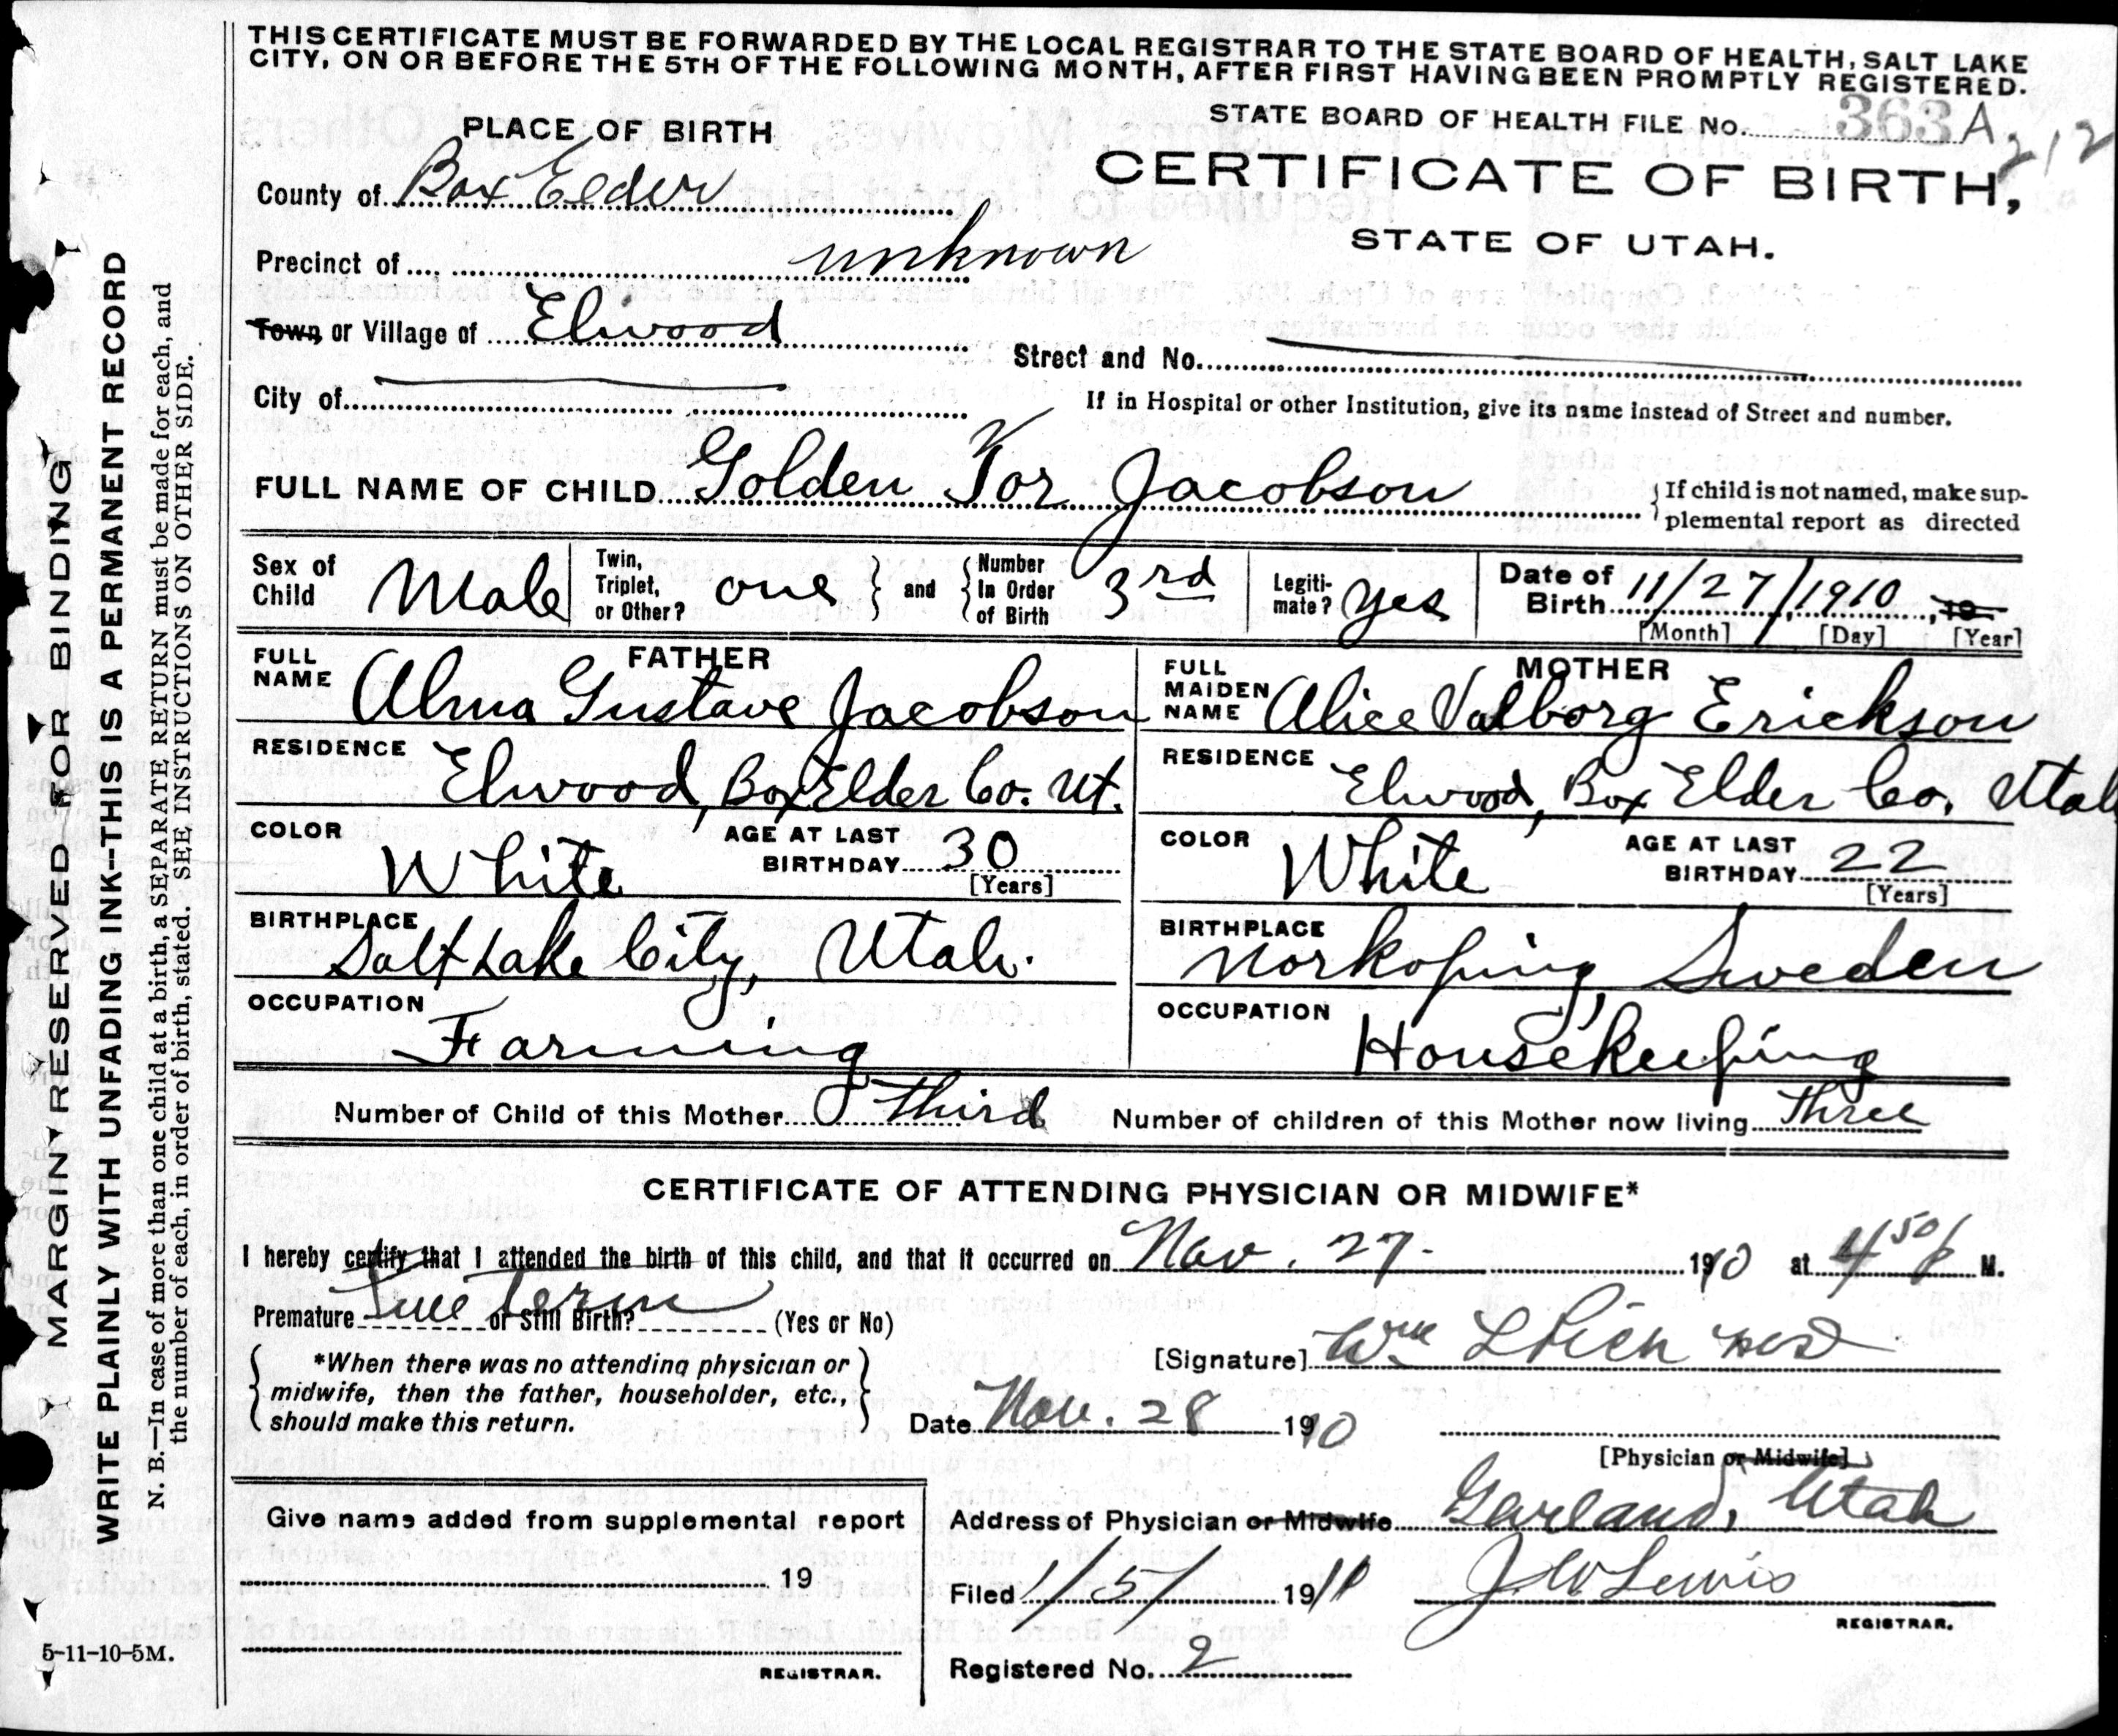 THIS CERTIFICATE MUST BE FORWARDED BY THE LOCAL REGISTRAR TO THE STATE BOARD OF HEALTH, SALT LAKE
CITY, ON OR BEFORE THE 5TH OF THE FOLLOWING MONTH, AFTER FIRST HAVING BEEN PROMPTLY REGISTERED.
STATE BOARD OF HEALTH FILE No. 363 A, 212
PLACE OF BIRTH
CERTIFICATE OF BIRTH,
STATE OF UTAH.
County of Box Elder
Precinct of unknown
Town or Village of Elwood
Street and No.
City of
If in Hospital or other Institution, give its name instead of Street and number.
FULL NAME OF CHILD Golden Tor Jacobson
If child is not named, make sup-
plemental report as directed
Sex of Child Male
Twin, Triplet, or Other? one and Number In Order of Birth 3rd
Legiti-mate? yes
Date of Birth 11/27/1910, 19
[Month] [Day] [Year]
FATHER
FULL NAME Alma Gustave Jacobson
RESIDENCE Elwood, Box Elder Co. Ut.
COLOR White AGE AT LAST BIRTHDAY 30 [Years]
BIRTHPLACE Salt Lake City, Utah.
OCCUPATION Farming
MOTHER
FULL MAIDEN NAME Alice Valborg Erickson
RESIDENCE Elwood, Box Elder Co. Utah
COLOR White AGE AT LAST BIRTHDAY 22 [Years]
BIRTHPLACE Norkoping, Sweden
OCCUPATION Housekeeping
Number of Child of this Mother Third Number of children of this Mother now living Three
CERTIFICATE OF ATTENDING PHYSICIAN OR MIDWIFE*
I hereby certify that I attended the birth of this child, and that it occurred on Nov. 27. 1910 at 4 50 p M.
Premature or Still Birth? (Yes or No) term
*When there was no attending physician or
midwife, then the father, householder, etc.,
should make this return.
[Signature] Wm L Rich MD
Date Nov. 28 1910
[Physician or Midwife]
Give name added from supplemental report
19
REGISTRAR.
Address of Physician or Midwife Garland, Utah
Filed 1/5/ 1911 J. W Lewis
REGISTRAR.
Registered No. 2
MARGIN RESERVED FOR BINDING
WRITE PLAINLY WITH UNFADING INK--THIS IS A PERMANENT RECORD
N. B.—In case of more than one child at a birth, a SEPARATE RETURN must be made for each, and
the number of each, in order of birth, stated. SEE INSTRUCTIONS ON OTHER SIDE.
5-11-10-5M.